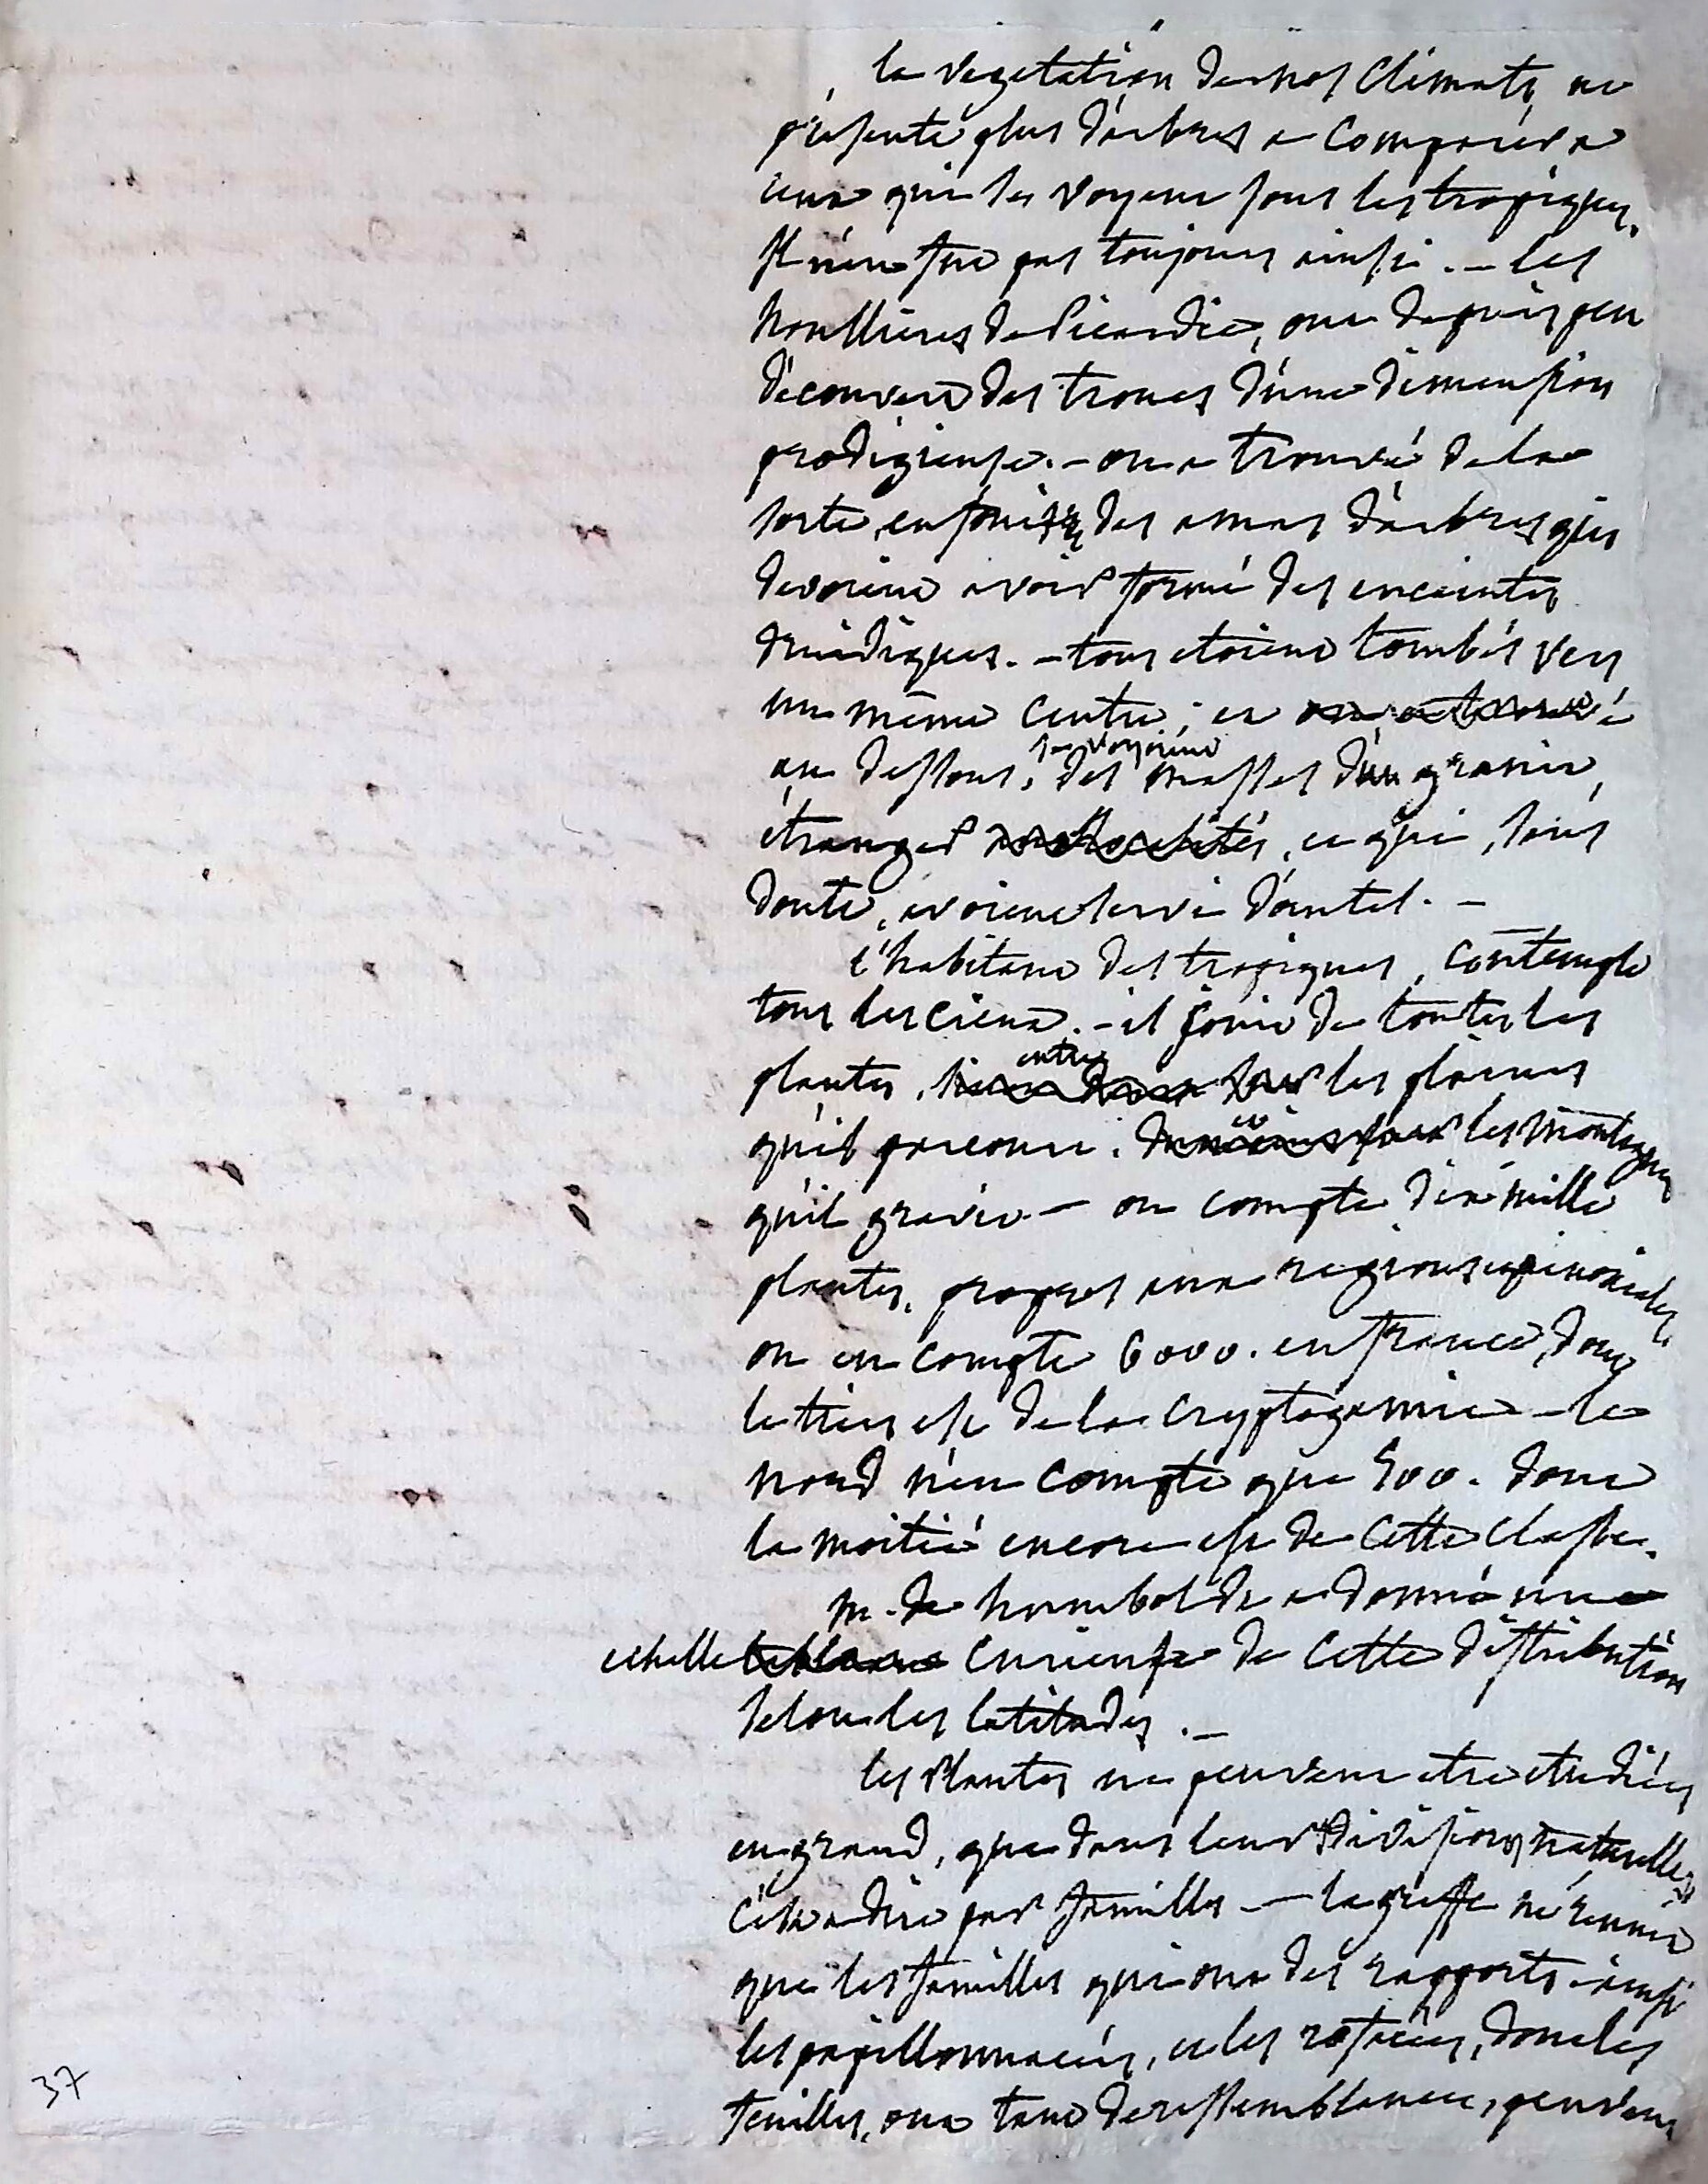 la vegetation de nos Climats ne
présente plus d'arbres a comparer a
ceux qui se voyent sous les tropiques.
Il n'en fut pas toujours ainsi. — les
houllieres de Picardie, ont depuis peu
découvert des troncs d'une dimension
prodigieuse. — on a trouvé de la
sorte, enfouis, des amas d'arbres qui
devoient avoir formé des enceintes
druidiques. — tous etoient tombés vers
un même centre; et on a trouvé
se voyoient
au dessous, des masses d'un granit,
étranger aux localités, et qui, sans
doute, avoient servi d'autel. —
l'habitant des tropiques, contemple
tous les cieux. — il jouit de toutes les
entre
plantes, les plaines
et
qu'il parcourt. les montagnes
qu'il gravit — on compte dix mille
plantes, propres aux regions equinoxiales,
on en compte 6000. en france, dont
le tiers est de la Cryptogamie — le
nord n'en compte que 500. dont
la moitié encore est de cette classe.
m. de humboldt a donné une
echelle tableau curieuse de cette distribution
selon les latitudes. —
les Plantes ne peuvent etre etudiées
en grand, que dans leurs divisions naturelles
c'est a dire par familles — la greffe ne réunit
que les familles qui ont des rapports — ainsi
les papillonnacées, et les rosacées, dont les
feuilles, ont tant de ressemblance, peuvent
37